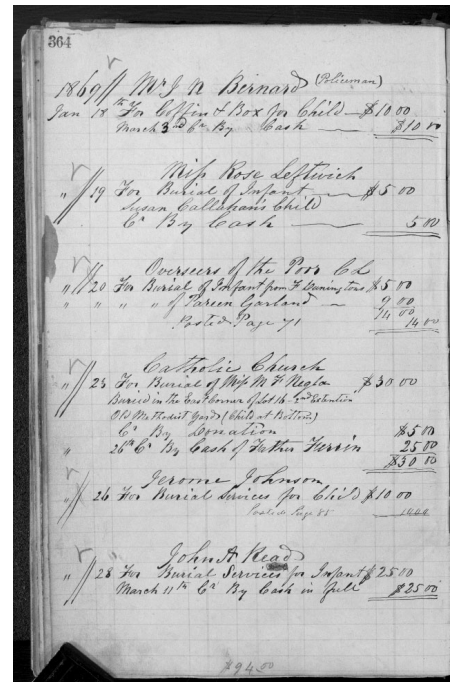 364
1869 Mr J N Bernard (Policeman)
Jan 18th For Coffin & Box for Child $10 00
March 3rd Cr By Cash $10 00
Miss Rose Leftwich
" 19 For Burial of Infant $5 00
Susan Callahan's Child
Cr By Cash 5 00
Overseers of the Poor
" 20 For Burial of Infant from $5 00
" " " " of Garland 9 00
14 00
Posted Page 71 14 00
Catholic Church
" 25 For Burial of Miss M F $30 00
Buried in the East Corner of Lot 16 2nd Extention
Old Methodist Yard (Child at Bottom)
Cr By Donation $5 00
" 26th Cr By Cash of Father 25 00
$30 00
Jerome Johnson
" 26 For Burial Services for Child $10 00
Posted Page 85 10 00
John A Read
" 28 For Burial Services for Infant $25 00
March 11th Cr By Cash in full $25 00
$94.00